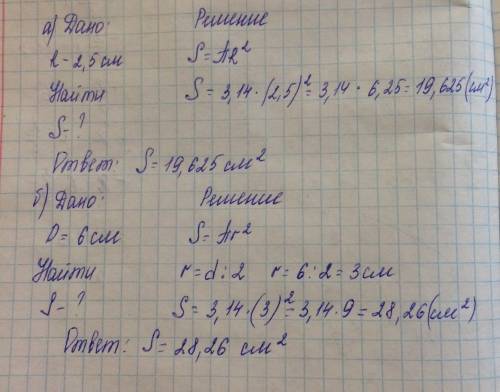 а) Дано: Решение
R - 2,5 см S = πR²
Найти S = 3,14 · (2,5)² = 3,14 · 6,25 = 19,625 (см²)
S - ?
Ответ: S = 19,625 см²
б) Дано: Решение
D = 6 см S = πr²
Найти r = d : 2 r = 6 : 2 = 3 см
S - ? S = 3,14 · (3)² = 3,14 · 9 = 28,26 (см²)
Ответ: S = 28,26 см²